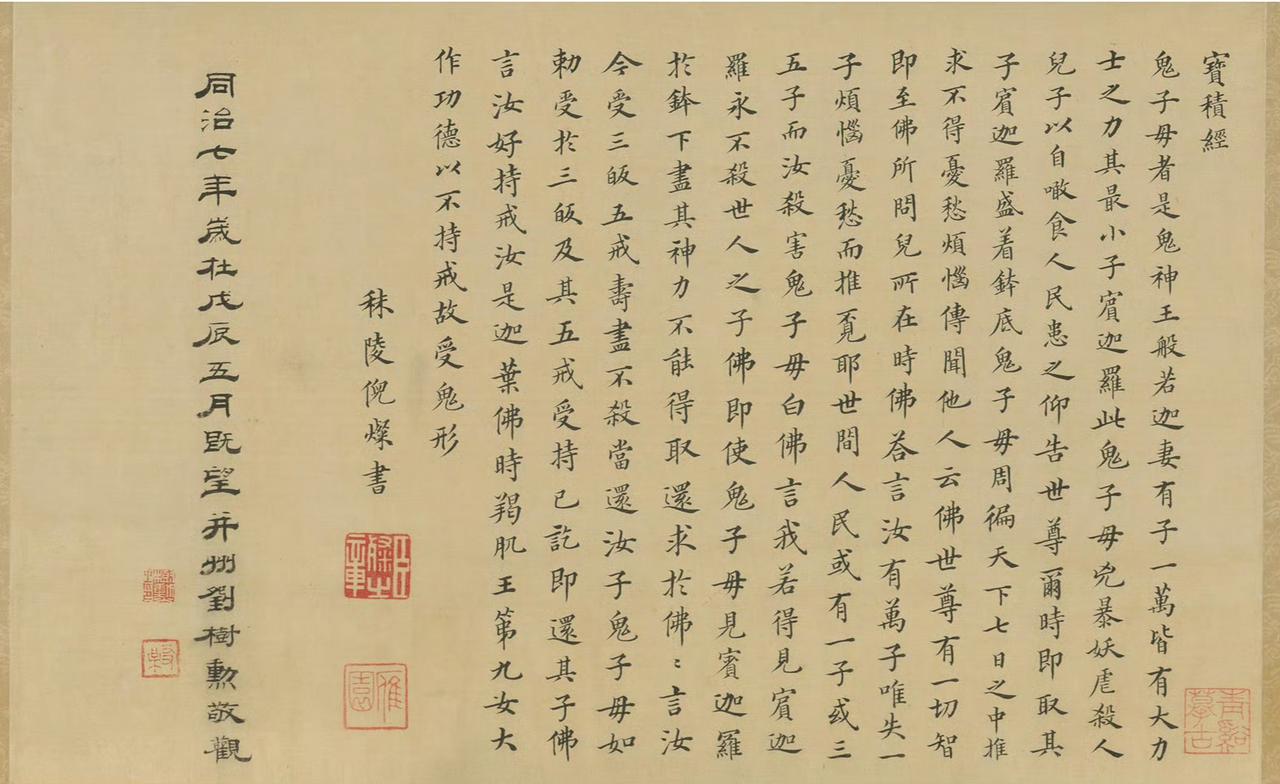 寶積經
鬼子毋者是鬼神王般若迦妻有子一萬皆有大力
士之力其最小子賓迦羅此鬼子毋兇暴妖虐殺人
兒子以自噉食人民患之仰告世尊爾時即取其
子賓迦羅盛着鉢底鬼子毋周徧天下七日之中推
求不得憂愁煩惱傳聞他人云佛世尊有一切智
即至佛所問兒所在時佛答言汝有萬子唯失一
子煩惱憂愁而推覔耶世間人民或有一子或三
五子而汝殺害鬼子毋白佛言我若得見賓迦
羅永不殺世人之子佛即使鬼子毋見賓迦羅
於鉢下盡其神力不能得取還求於佛〻言汝
今受三皈五戒壽盡不殺當還汝子鬼子毋如
勅受於三皈及其五戒受持已訖即還其子佛
言汝好持戒汝是迦葉佛時羯肌王第九女大
作功德以不持戒故受鬼形
秣陵倪燦書
雁園
青谿
摹古
同治七年歲在戊辰五月既望并州劉樹勳敬觀